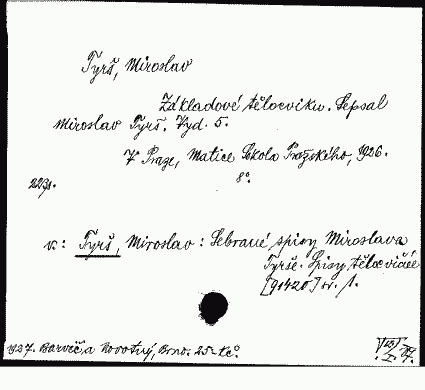 Tyrš, Miroslav
Základové tělocviku. Sepsal
Miroslav Tyrš. Vyd. 5.
V Praze, Matice Sokola Pražského, 1926.
8°.
v: Tyrš, Miroslav: Sebrané spisy Miroslava
Tyrše. Spisy tělocvičné
[91420] sv. 1.
1927. Barvič a Novotný, Brno. 25 Kč.